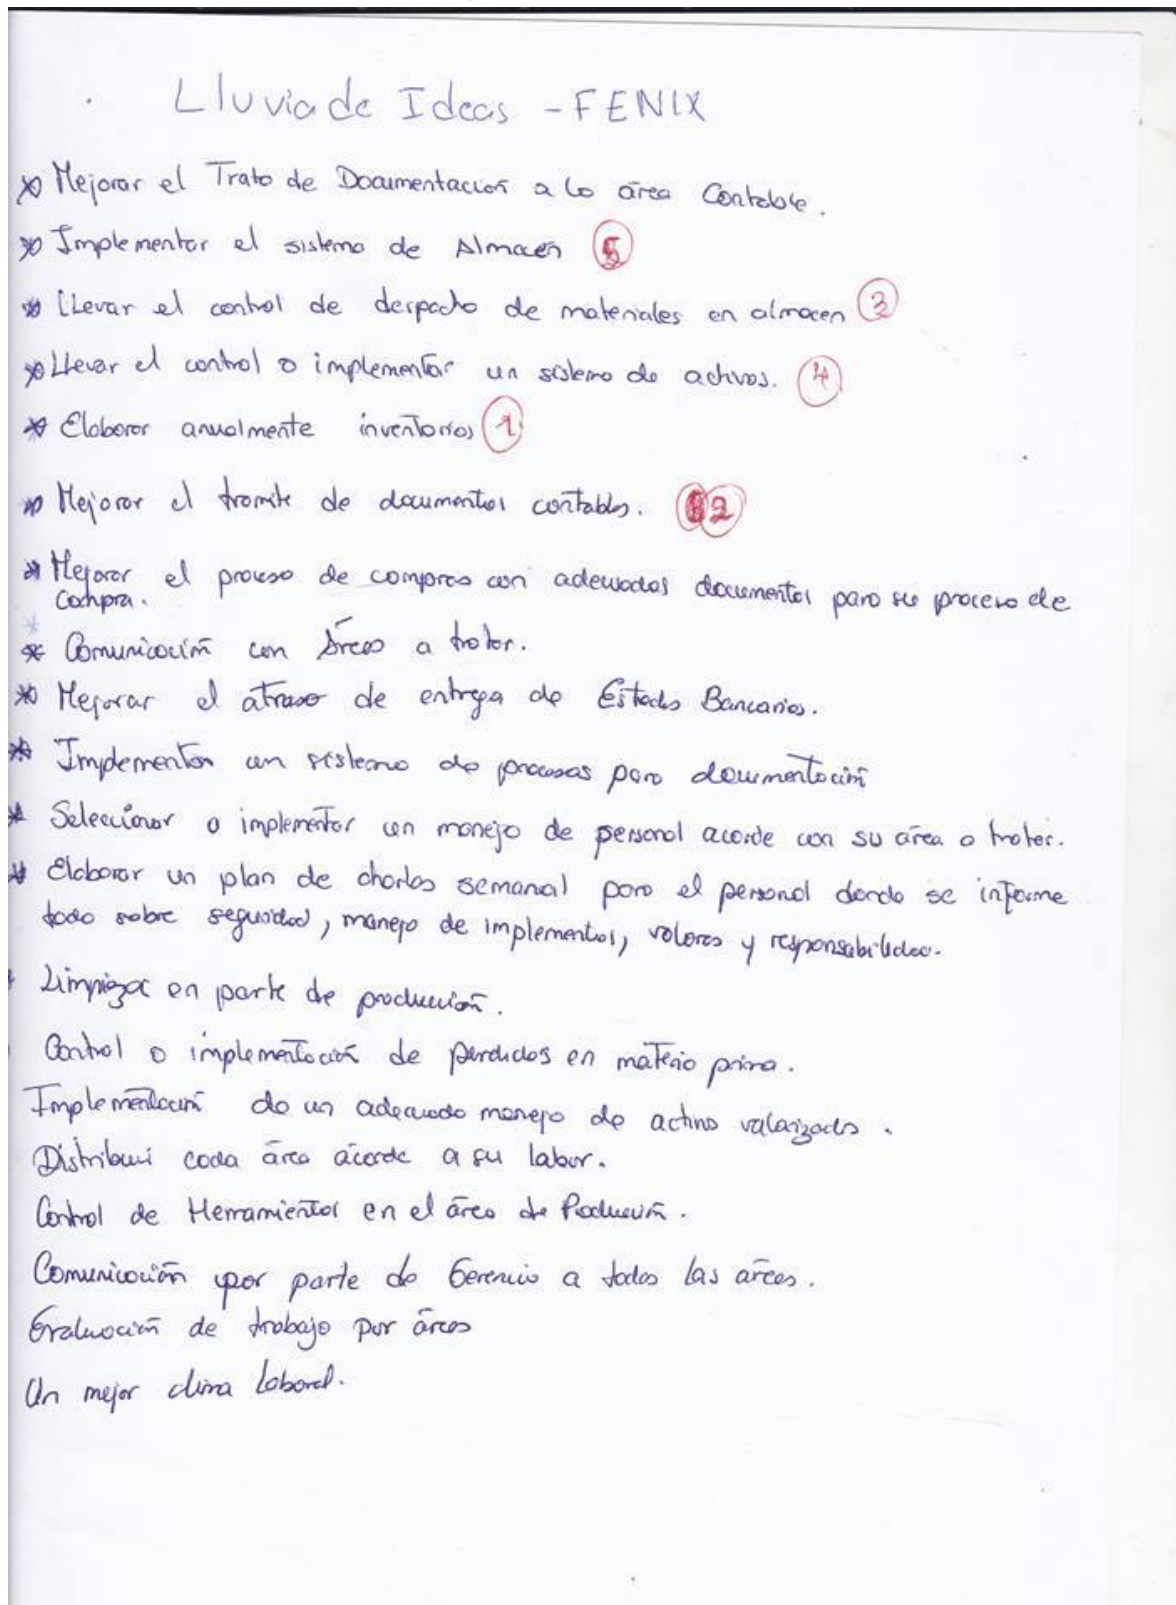 Lluvia de Ideas - FENIX
* Mejorar el Trato de Documentación a la área Contable.
* Implementar el sistema de Almacén 5
* Llevar el control de despacho de materiales en almacen 3
* Llevar el control o implementar un sistema de activos. 4
* Elaborar anualmente inventarios 1
* Mejorar el tramite de documentos contables. 2
* Mejorar el proceso de compras con adecuados documentos para su proceso de
Compra.
* Comunicación con áreas a tratar.
* Mejorar el atraso de entrega de Estados Bancarios.
* Implementar un sistema de procesos para documentación
* Seleccionar o implementar un manejo de personal acorde con su área a tratar.
* Elaborar un plan de charlas semanal para el personal donde se informe
todo sobre seguridad, manejo de implementos, valores y responsabilidad.
* Limpieza en parte de producción.
Control o implementación de perdidas en materia prima.
Implementación de un adecuado manejo de activo valorizados.
Distribuir cada área acorde a su labor.
Control de Herramientas en el área de Producción.
Comunicación por parte de Gerencia a todas las áreas.
Evaluación de trabajo por áreas
Un mejor clima laboral.